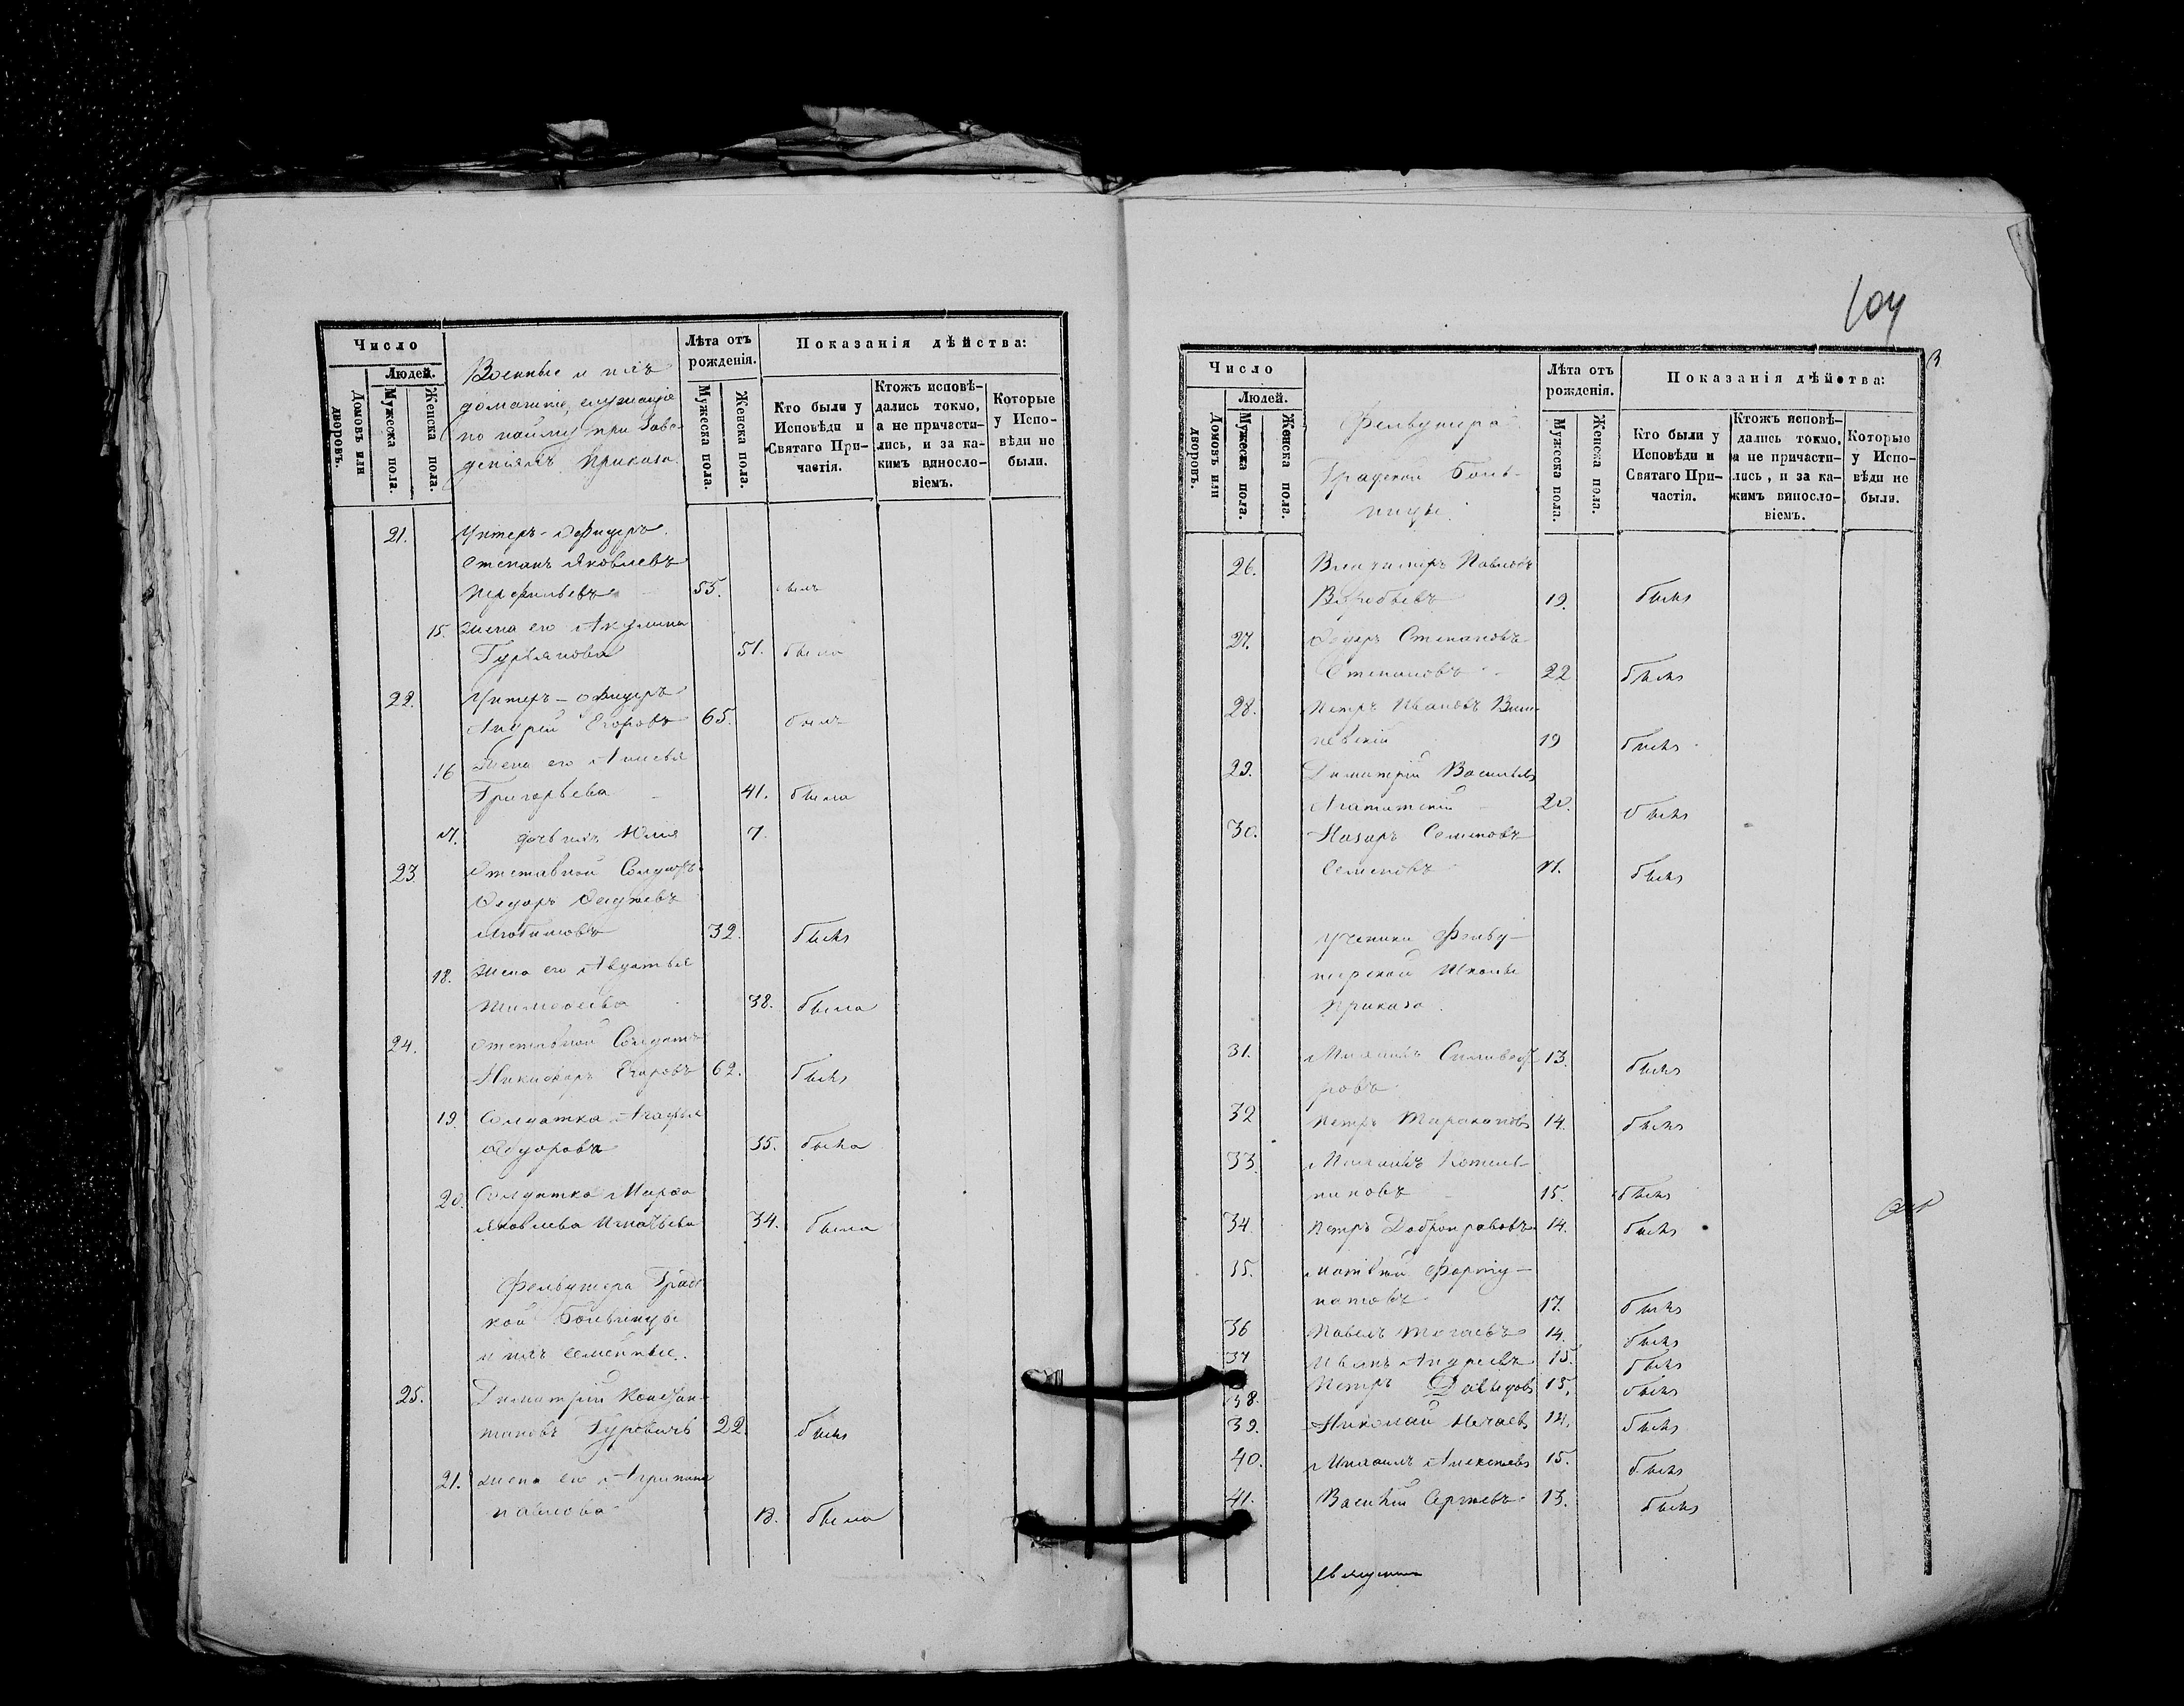 Число
Людей.
Домовъ или дворовъ.
Мужеска пола.
Женска пола.
Военные и ихъ
домашніе, служащіе
по найму при Заве-
деніяхъ Приказа.
Лѣта отъ рожденія.
Мужеска пола.
Женска пола.
Показанія дѣйства:
Кто были у Исповѣди и Святаго Причастія.
Ктожъ исповѣдались токмо, а не причастились, и за какимъ винословіемъ.
Которые у Исповѣди не были.
21. Унтеръ-Офицеръ
Степанъ Яковлевъ
55. былъ
15. Жена его Акулина
Гурьянова 51. была
22. Унтеръ-офицеръ
Андрей Егоровъ 65. былъ
16 Жена его Анисья
Григорьева 41. была
17. дочь ихъ Юлія 7.
23 Отставной Солдатъ
Ѳедоръ
Любимовъ 32. былъ
18. Жена его Авдотья
Тимоѳеева 38. была
24. Отставной Солдатъ
Никифоръ Егоровъ 62. былъ
19. Солдатка Агафья
Ѳедорова 35. была
20. Солдатка Марѳа
Яковлева Игнатьева 34. была
Фельдшера Град-
кой Больницы
и ихъ семейные.
25. Димитрій Констан-
тиновъ Гуровичъ 22. былъ
21. Жена его Агрипина
Павлова была
104
Число
Людей.
Домовъ или дворовъ.
Мужеска пола.
Женска пола.
Фельдшера
Градской Боль-
ницы.
Лѣта отъ рожденія.
Мужеска пола.
Женска пола.
Показанія дѣйства:
Кто были у Исповѣди и Святаго Причастія.
Ктожъ исповѣдались токмо, а не причастились, и за какимъ винословіемъ.
Которые у Исповѣди не были.
26. Владиміръ Павловъ
Воробьевъ 19. былъ
27. Ѳедоръ Степановъ
Степановъ 22 былъ
28. Петръ Ивановъ Виш-
невскій 19 былъ
29. Димитрій Васильевъ
20. былъ
30. Назаръ Семеновъ
Семеновъ былъ
Ученики Фельд-
шерской Школы
Приказа.
31. Михаилъ 13. былъ
32 Петръ Таракановъ 14. былъ
33. Михаилъ Котель-
никовъ 15. былъ
34 Петръ Добронравовъ 14. былъ
35. Матвѣй Форту-
натовъ 17. былъ
36 Павелъ 14. былъ
37 Иванъ Андреевъ 15. былъ
38. Петръ Давыдовъ 15. былъ
39. Николай Нечаевъ 14. былъ
40. Михаилъ Алексѣевъ 15. былъ
41. Василій Сергѣевъ 13. былъ